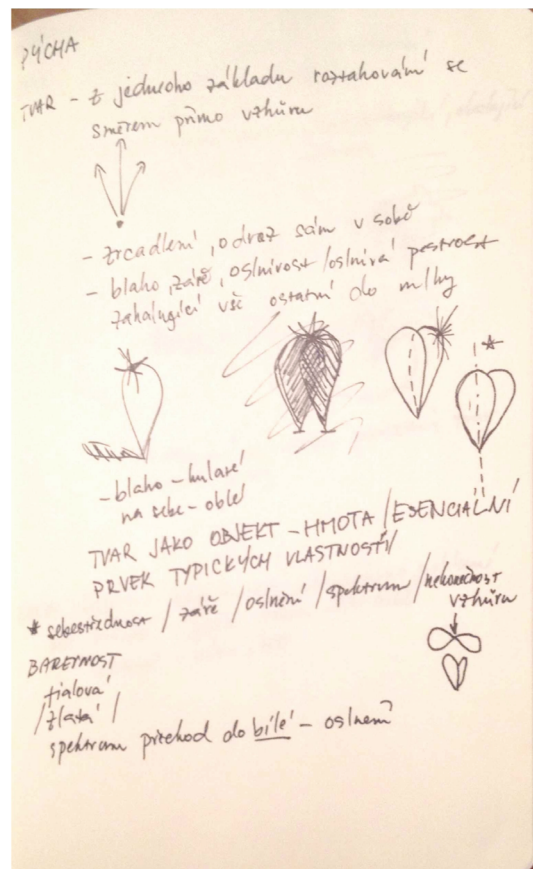 PÝCHA
TVAR - z jednoho základu roztahování se
směrem přímo vzhůru
- zrcadlení, odraz sám v sobě
- blaho, záře, oslnivost/oslnivá pestrost
zahalující vše ostatní do mlhy
- blaho - kulaté
na sebe - oblé
TVAR JAKO OBJEKT - HMOTA/ESENCIÁLNÍ
PRVEK TYPICKÝCH VLASTNOSTÍ/
* sebestřednost / záře / oslnění / spektrum / nekonečnost
vzhůru
BAREVNOST
fialová
/zlatá/
spektrum přechod do bílé - oslnění